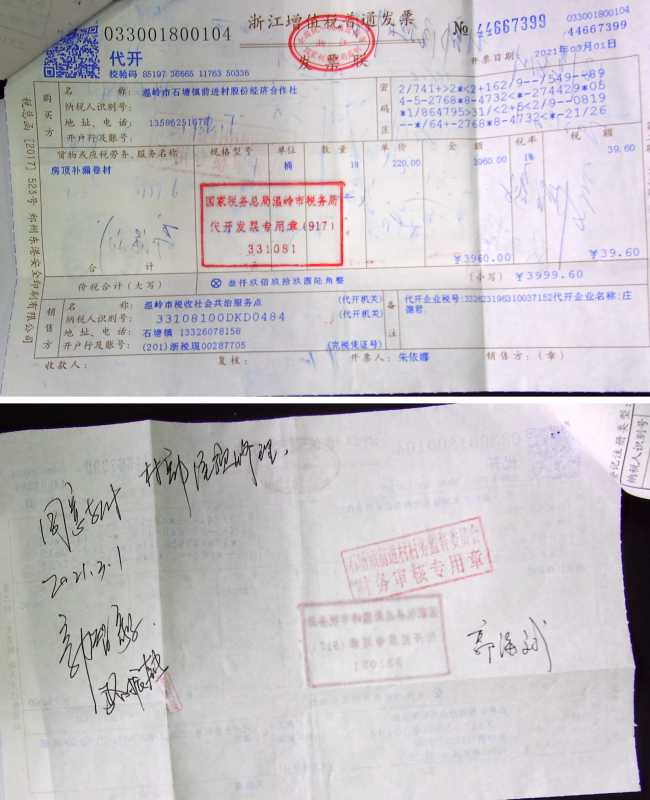 033001800104
浙江增值税普通发票
№ 44667399
033001800104
44667399
代开
发票联
开票日期：2021年03月01日
校验码 85197 36665 11763 50336
税总函[2017]523号
购买方
名称：温岭市石塘镇前进村股份经济合作社
纳税人识别号：
地址、电话：
开户行及账号：
密码区
2/741+>2*<2+162/9--/549--89
4-5-2768*8-4732<*-274429*05
*1/864795>31/<2+5<2/9--0819
--*/64+-2768*8-4732<*-21/26
货物或应税劳务、服务名称 规格型号 单位 数量 单价 金额 税率 税额
房顶补漏卷材 桶 18 220.00 3960.00 1% 39.60
国家税务总局温岭市税务局
代开发票专用章(917)
331081
合计 ¥3960.00 ¥39.60
价税合计（大写） ⊗ 叁仟玖佰玖拾玖圆陆角整 （小写）¥3999.60
销售方
名称：温岭市税收社会共治服务点 (代开机关)
纳税人识别号：33108100DKD0484 (代开机关)
地址、电话：石塘镇 13326078158
开户行及账号：(201)浙税现00287705 (完税凭证号)
备注
代开企业名称:庄
收款人： 复核： 开票人：朱依娜 销售方：（章）
033001800104
代开
登记注册类型
纳税人识别号
同意支付
2021.3.1
石塘镇前进村村务监督委员会
财务审核专用章
国家税务总局温岭市税务局
代开发票专用章(917)
331081